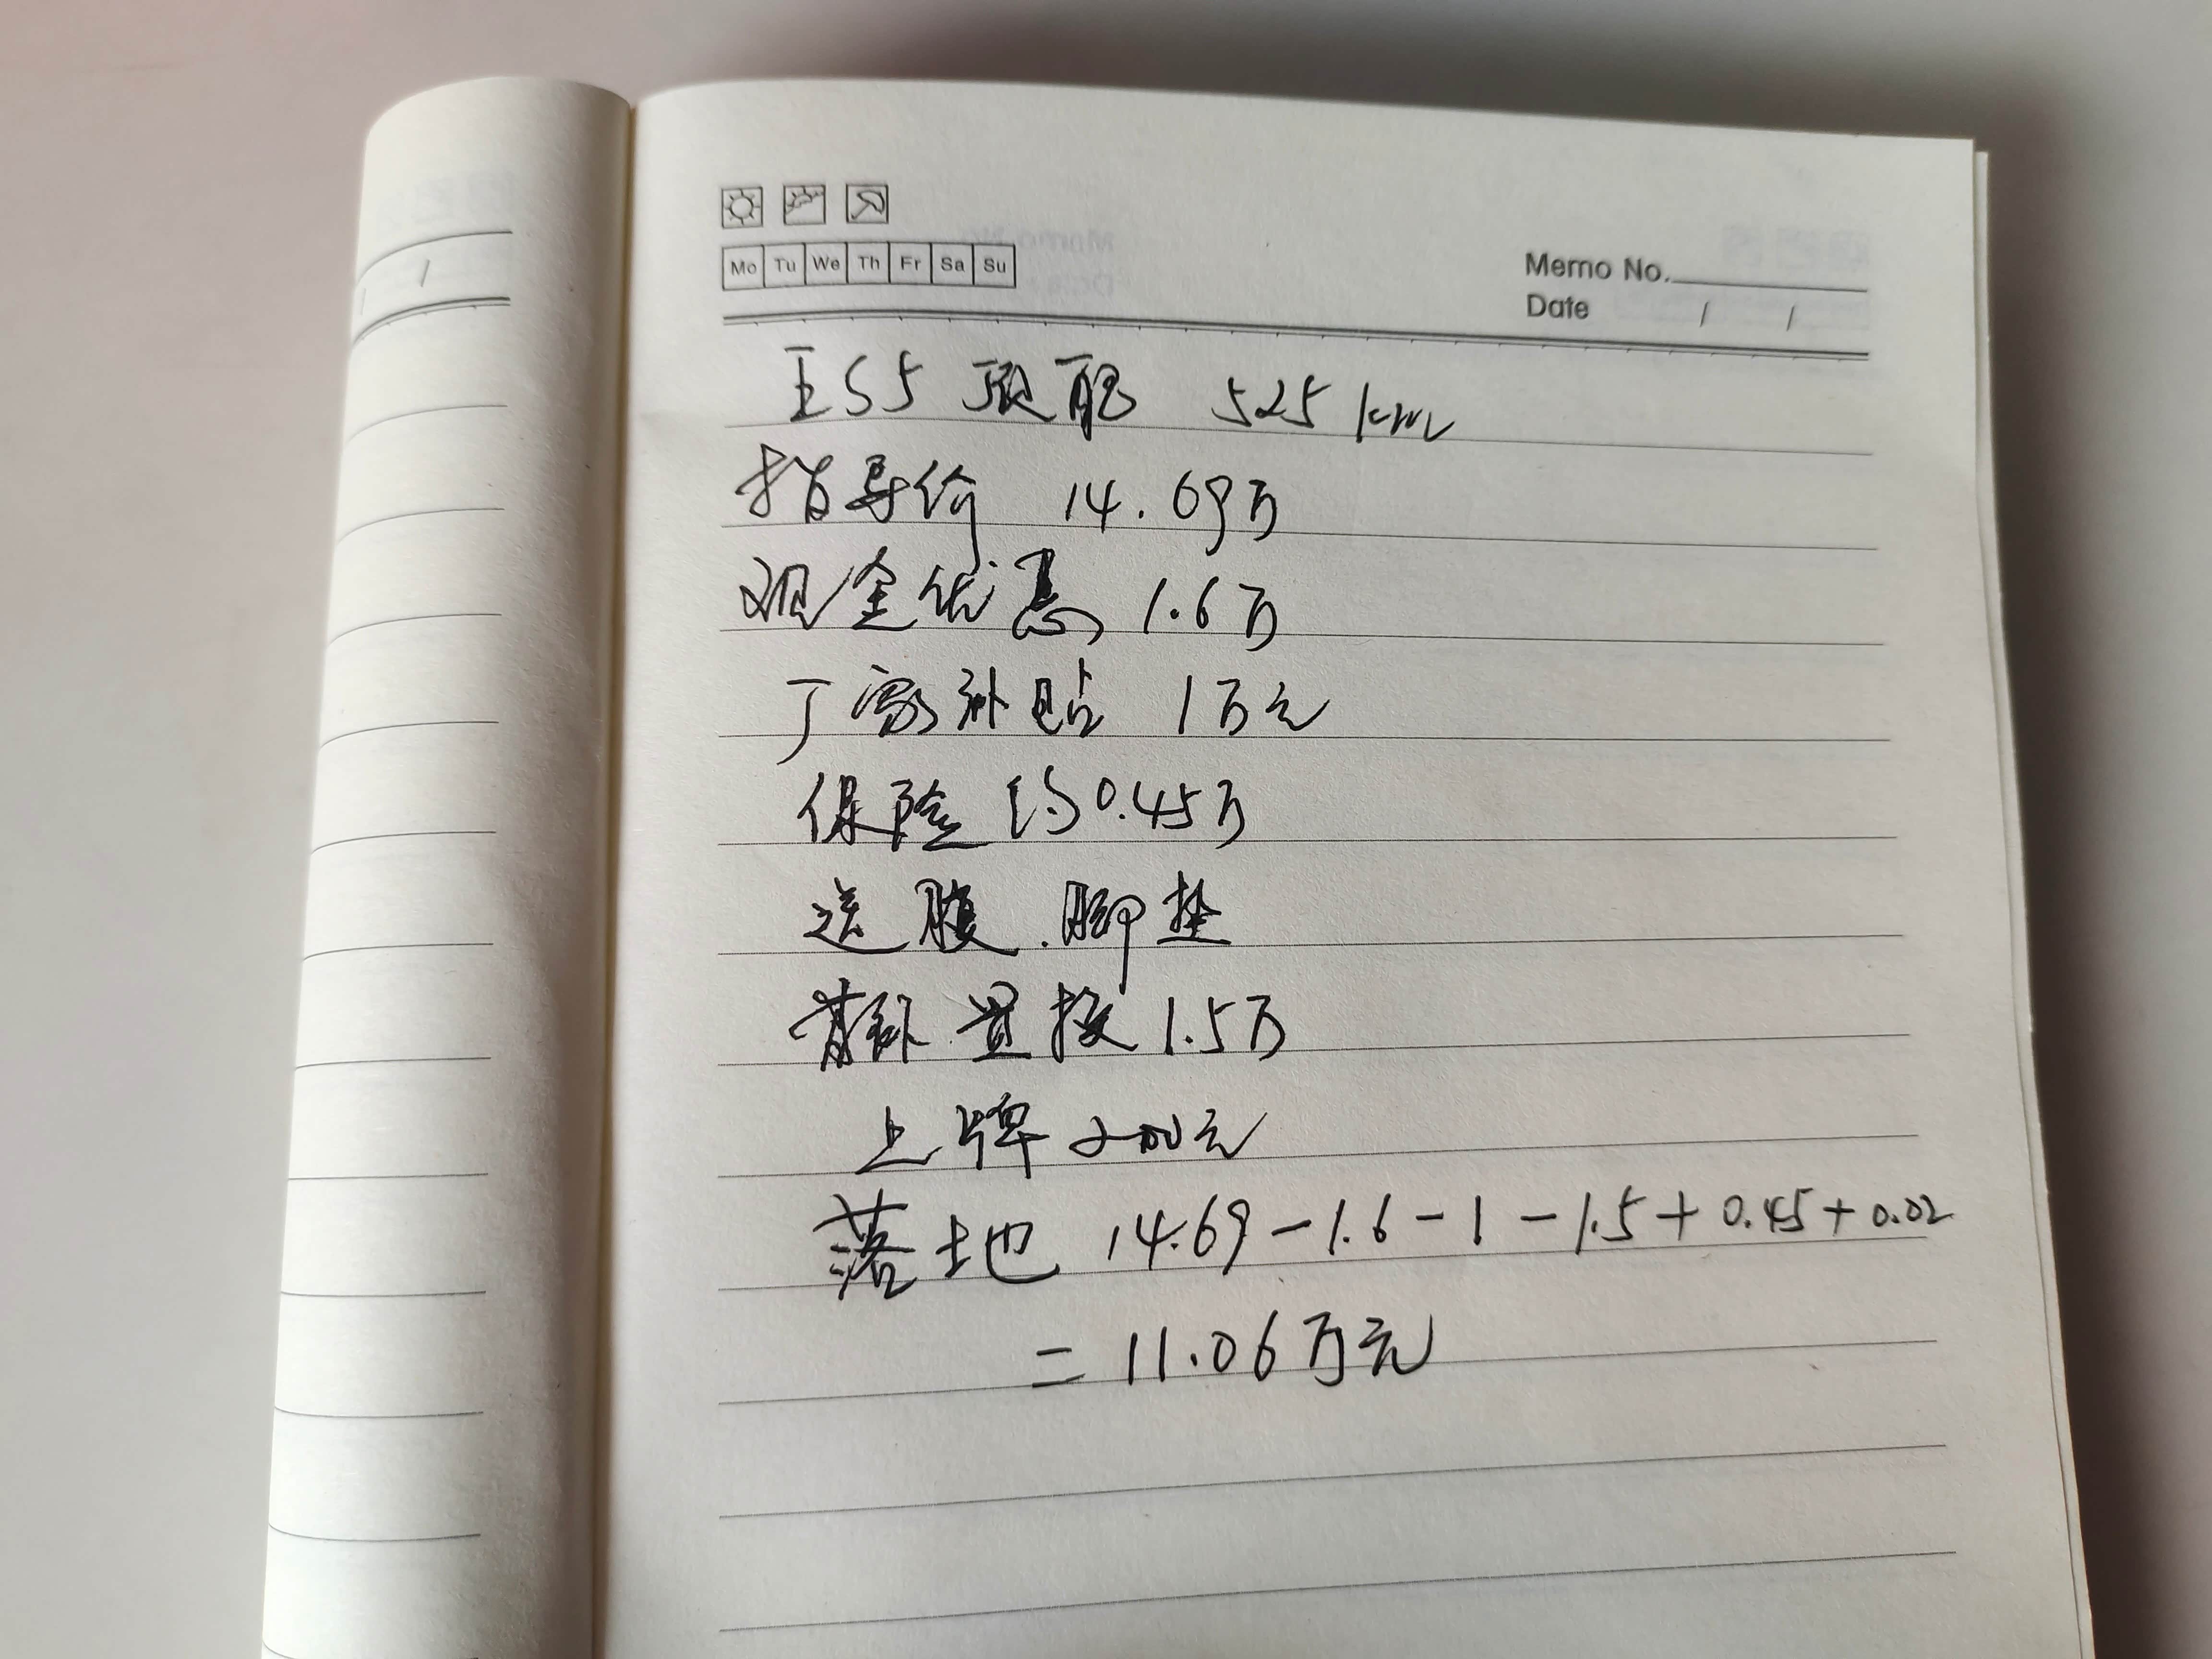 Mo Tu We Th Fr Sa Su
Memo No.
Date / /
ES5 顶配 525 km
指导价 14.69万
现金优惠 1.6万
厂家补贴 1万元
保险 约0.45万
送膜.脚垫
置换 1.5万
上牌 200元
落地 14.69-1.6-1-1.5+0.45+0.02
=11.06万元